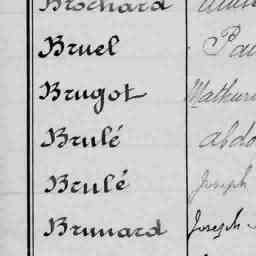 Brochard
Bruel
Brugot Mathuri
Brulé Abdo
Brulé Joseph
Brunard Joseph